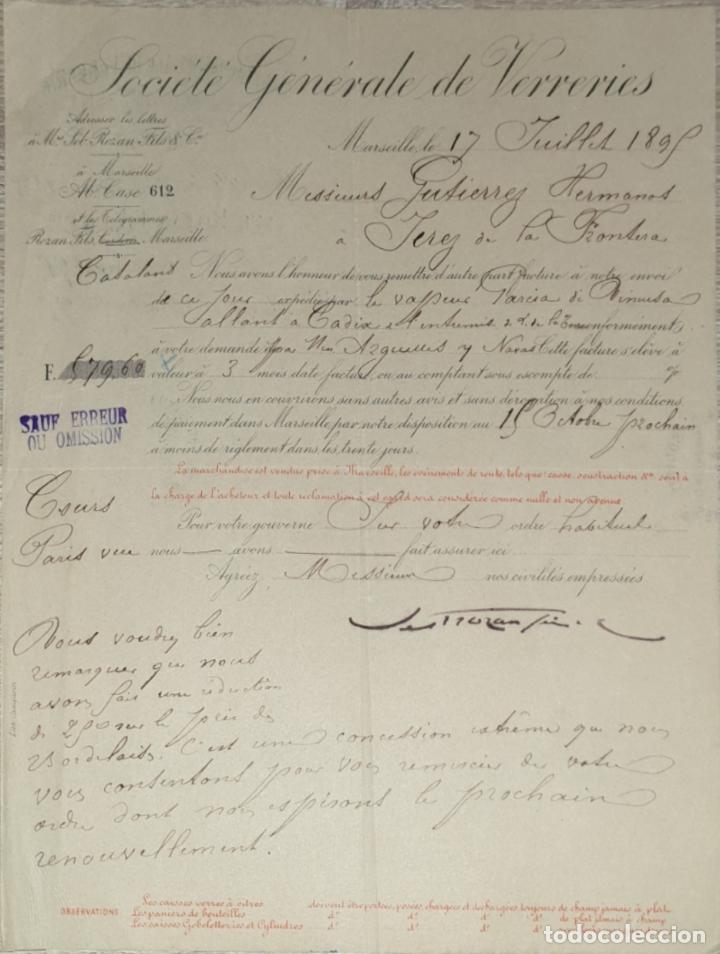 Société Générale de Verreries
Adresser les lettres
à Mrs Seb. Rozan Fils & Cie
à Marseille
Ab Case 612
et les Télégrammes
Rozan Fils, Marseille
Marseille, le 17 Juillet 1895
Messieurs Gutierrez Hermanos
à Jerez de la Frontera
Catalans Nous avons l'honneur de vous remettre d'autre part facture à notre envoi
de ce jour expédié par le vapeur Garcia de Vinuesa
allant à Cadix conformément
à votre demande Cette facture s'élève à
F. 579.60 valeur à 3 mois date facture, ou au comptant sous escompte de %
Nous nous en couvrirons sans autres avis et sans dérogation à nos conditions
de paiement dans Marseille par notre disposition au 15 Octobre prochain
à moins de règlement dans les trente jours.
SAUF ERREUR
OU OMISSION
La marchandise est vendue prise à Marseille, les évènements de route, tels que: casse, soustraction &a sont à
la charge de l'acheteur et toute réclamation à cet égard sera considérée comme nulle et non avenue.
Pour votre gouverne Sur votre ordre habituel
nous avons fait assurer ici
Agréez, Messieurs nos civilités empressées
Paris vue
Vous voudrez bien
remarquer que nous
avons fait une réduction
de sur le prix des
Bordelaises. C'est une concession extrême que nous
vous consentons pour vous remercier de votre
ordre dont nous espérons le prochain
renouvellement.
OBSERVATIONS
Les caisses verres à vitres doivent être portées, posées, chargées et déchargées toujours de champ jamais à plat
Les paniers de bouteilles do do do do de plat jamais à champ
Les caisses Gobeletteries et Cylindres do do do do
todocoleccion.net